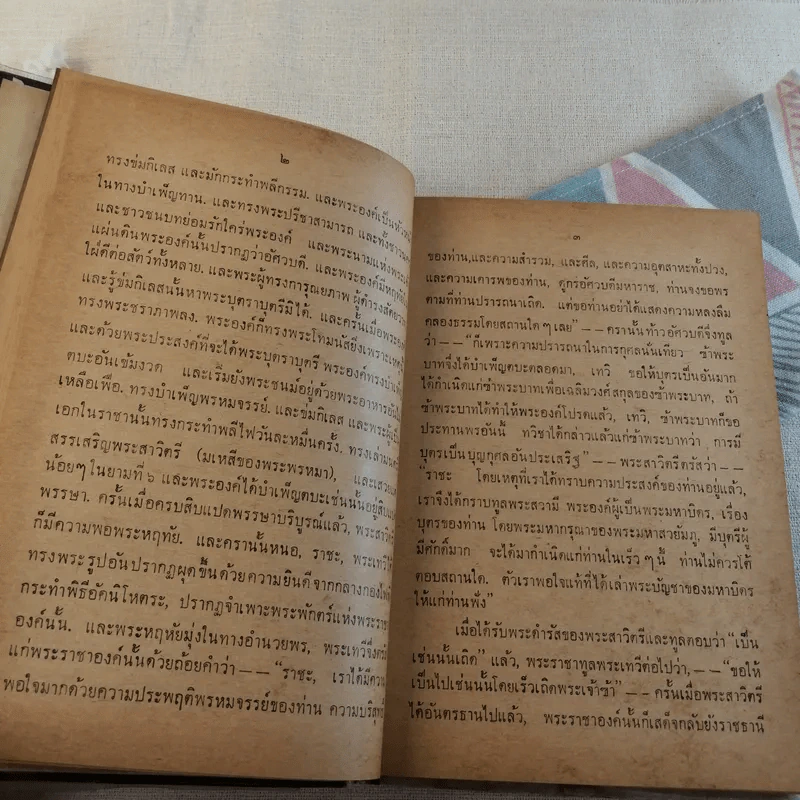 ๒
ทรงข่มกิเลส และมักกระทำพลีกรรม. และพระองค์เป็น
ในทางบำเพ็ญทาน. และทรงพระปรีชาสามารถ และทั้ง
และชาวชนบทย่อมรักใคร่พระองค์ และพระนามแห่งพระ
แผ่นดินพระองค์นั้นปรากฏว่าอัศวบดี. และพระองค์มี
ใฝ่ดีต่อสัตว์ทั้งหลาย. และพระผู้ทรงการุณยภาพ ผู้ดำรงสัตย์
และรู้ข่มกิเลสนั้นหาพระบุตราบุตรีมิได้. และครั้นเมื่อพระ
ทรงพระชราภาพลง. พระองค์ก็ทรงพระโทมนัสยิ่งเพราะเหตุ
และด้วยพระประสงค์ที่จะได้พระบุตราบุตรี พระองค์ทรง
ตบะอันเข้มงวด และเริ่มยังพระชนม์อยู่ด้วยพระอาหารอัน
เหลือเฟือ. ทรงบำเพ็ญพรหมจรรย์. และข่มกิเลส และพระผู้
เอกในราชานั้นทรงกระทำพลีไฟวันละหมื่นครั้ง.
สรรเสริญพระสาวิตรี (มเหสีของพระพรหมา), และ
น้อยๆ ในยามที่ ๖ และพระองค์ได้บำเพ็ญตบะเช่นนั้นอยู่
พรรษา. ครั้นเมื่อครบสิบแปดพรรษาบริบูรณ์แล้ว,
ก็มีความพอพระหฤทัย. และครานั้นหนอ, ราชะ, พระเทวี
ทรงพระรูปอันปรากฏผุดขึ้นด้วยความยินดีจากกลางกอง
กระทำพิธีอัคนิโหตระ, ปรากฏจำเพาะพระพักตร์แห่งพระราชา
องค์นั้น. และพระหฤทัยมุ่งในทางอำนวยพร, พระเทวีจึง
แก่พระราชาองค์นั้นด้วยถ้อยคำว่า — — “ราชะ, เราได้มีความ
พอใจมากด้วยความประพฤติพรหมจรรย์ของท่าน ความบริสุทธิ์
๓
ของท่าน,และความสำรวม, และศีล, และความอุตสาหะทั้งปวง,
และความเคารพของท่าน, ดูกรอัศวบดีมหาราช, ท่านจงขอพร
ตามที่ท่านปรารถนาเถิด. แต่ขอท่านอย่าได้แสดงความหลงลืม
คลองธรรมโดยสถานใดๆ เลย” — — ครานั้นท้าวอัศวบดีจึงทูล
ว่า — — “ก็เพราะความปรารถนาในการกุศลนั่นเทียว ข้าพระ
บาทจึงได้บำเพ็ญตบะตลอดมา, เทวี ขอให้บุตรเป็นอันมาก
ได้กำเนิดแก่ข้าพระบาทเพื่อเฉลิมวงศ์สกุลของข้าพระบาท, ถ้า
ข้าพระบาทได้ทำให้พระองค์โปรดแล้ว, เทวี, ข้าพระบาทก็ขอ
ประทานพรอันนี้ ทวิชาได้กล่าวแล้วแก่ข้าพระบาทว่า การมี
บุตรเป็นบุญกุศลอันประเสริฐ” — — พระสาวิตรีตรัสว่า — —
“ราชะ โดยเหตุที่เราได้ทราบความประสงค์ของท่านอยู่แล้ว,
เราจึงได้กราบทูลพระสวามี พระองค์ผู้เป็นพระมหาบิดร, เรื่อง
บุตรของท่าน โดยพระมหากรุณาของพระมหาสวยัมภู, มีบุตรีผู้
มีศักดิ์มาก จะได้มากำเนิดแก่ท่านในเร็วๆ นี้ ท่านไม่ควรโต้
ตอบสถานใด. ตัวเราพอใจแท้ที่ได้เล่าพระบัญชาของมหาบิดร
ให้แก่ท่านฟัง”
เมื่อได้รับพระดำรัสของพระสาวิตรีและทูลตอบว่า “เป็น
เช่นนั้นเถิด” แล้ว, พระราชาทูลพระเทวีต่อไปว่า, — — “ขอให้
เป็นไปเช่นนั้นโดยเร็วเถิดพระเจ้าข้า” — — ครั้นเมื่อพระสาวิตรี
ได้อันตรธานไปแล้ว, พระราชาองค์นั้นก็เสด็จกลับยังราชธานี